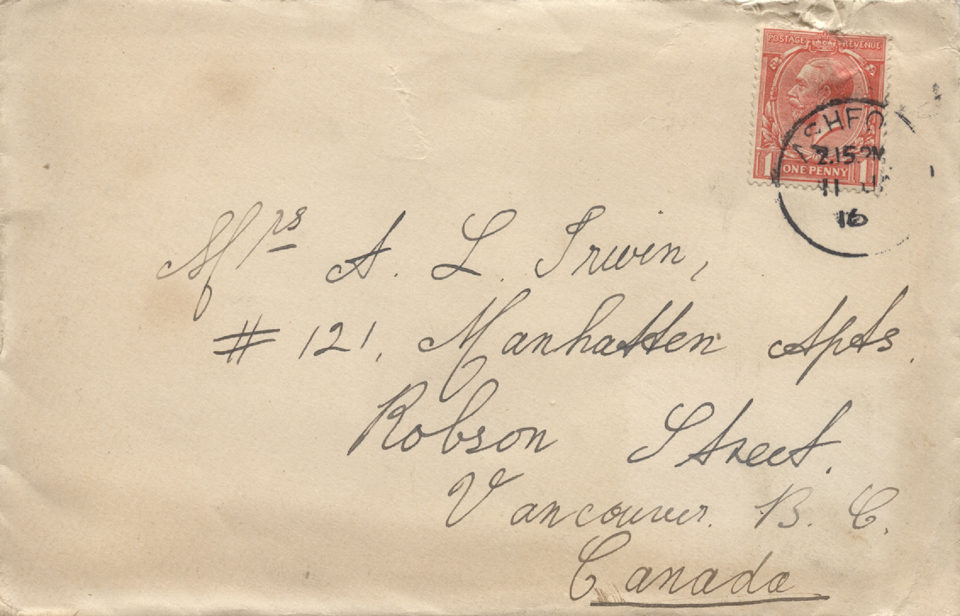 POSTAGE REVENUE
1 ONE PENNY 1
ASHFO
2.15 PM
11
16
Mrs A. L. Irwin,
# 121, Manhatten Apts.
Robson Street.
Vancouver. B. C.
Canada